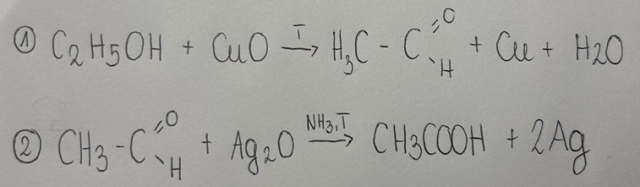 ① C2H5OH + CuO T→ H3C - C =O \H + Cu + H2O
② CH3 - C =O \H + Ag2O NH3,T→ CH3COOH + 2Ag